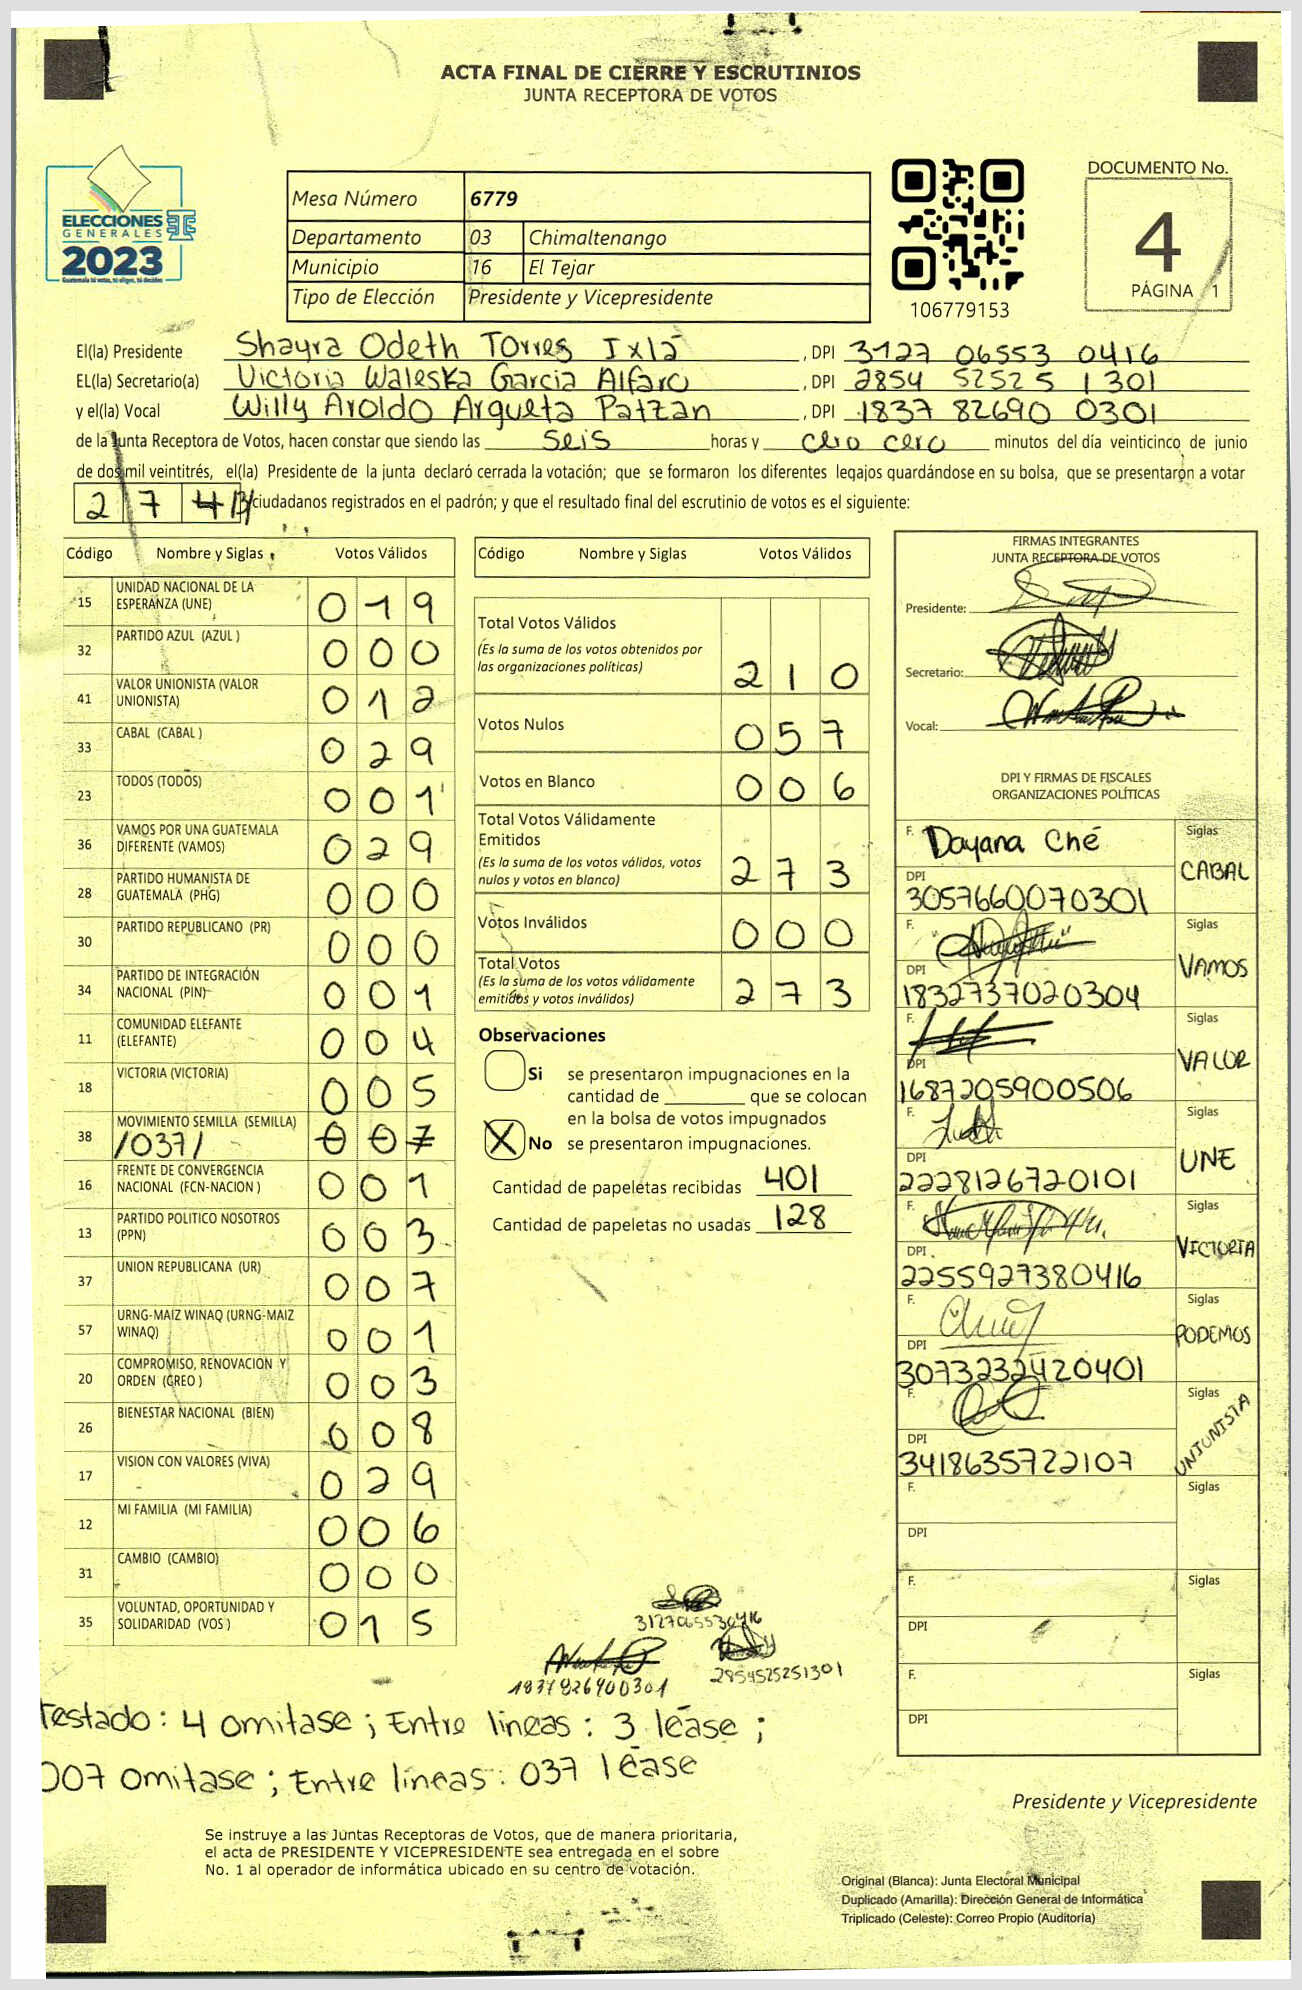 ACTA FINAL DE CIERRE Y ESCRUTINIOS
JUNTA RECEPTORA DE VOTOS
ELECCIONES
GENERALES
2023
Guatemala tú votas, tú eliges, tú decides
Mesa Número 6779
Departamento 03 Chimaltenango
Municipio 16 El Tejar
Tipo de Elección Presidente y Vicepresidente
106779153
DOCUMENTO No.
4
PÁGINA 1
El(la) Presidente Shayra Odeth Torres Ixlá , DPI 3127 06553 0416
EL(la) Secretario(a) Victoria Waleska Garcia Alfaro , DPI 2854 52525 1301
y el(la) Vocal Willy Aroldo Argueta Patzan , DPI 1837 82690 0301
de la Junta Receptora de Votos, hacen constar que siendo las seis horas y cero cero minutos del día veinticinco de junio
de dos mil veintitrés, el(la) Presidente de la junta declaró cerrada la votación; que se formaron los diferentes legajos guardándose en su bolsa, que se presentaron a votar
2 7 4 /3/ ciudadanos registrados en el padrón; y que el resultado final del escrutinio de votos es el siguiente:
Código Nombre y Siglas Votos Válidos
15 UNIDAD NACIONAL DE LA ESPERANZA (UNE) 0 1 9
32 PARTIDO AZUL (AZUL ) 0 0 0
41 VALOR UNIONISTA (VALOR UNIONISTA) 0 1 2
33 CABAL (CABAL ) 0 2 9
23 TODOS (TODOS) 0 0 1
36 VAMOS POR UNA GUATEMALA DIFERENTE (VAMOS) 0 2 9
28 PARTIDO HUMANISTA DE GUATEMALA (PHG) 0 0 0
30 PARTIDO REPUBLICANO (PR) 0 0 0
34 PARTIDO DE INTEGRACIÓN NACIONAL (PIN) 0 0 1
11 COMUNIDAD ELEFANTE (ELEFANTE) 0 0 4
18 VICTORIA (VICTORIA) 0 0 5
38 MOVIMIENTO SEMILLA (SEMILLA) /037/ 0 0 7
16 FRENTE DE CONVERGENCIA NACIONAL (FCN-NACION ) 0 0 1
13 PARTIDO POLITICO NOSOTROS (PPN) 0 0 3
37 UNION REPUBLICANA (UR) 0 0 7
57 URNG-MAIZ WINAQ (URNG-MAIZ WINAQ) 0 0 1
20 COMPROMISO, RENOVACION Y ORDEN (CREO ) 0 0 3
26 BIENESTAR NACIONAL (BIEN) 0 0 8
17 VISION CON VALORES (VIVA) 0 2 9
12 MI FAMILIA (MI FAMILIA) 0 0 6
31 CAMBIO (CAMBIO) 0 0 0
35 VOLUNTAD, OPORTUNIDAD Y SOLIDARIDAD (VOS ) 0 1 5
Código Nombre y Siglas Votos Válidos
Total Votos Válidos
(Es la suma de los votos obtenidos por
las organizaciones políticas) 2 1 0
Votos Nulos 0 5 7
Votos en Blanco 0 0 6
Total Votos Válidamente
Emitidos
(Es la suma de los votos válidos, votos
nulos y votos en blanco) 2 7 3
Votos Inválidos 0 0 0
Total Votos
(Es la suma de los votos válidamente
emitidos y votos inválidos) 2 7 3
Observaciones
Si se presentaron impugnaciones en la
cantidad de ________ que se colocan
en la bolsa de votos impugnados
X No se presentaron impugnaciones.
Cantidad de papeletas recibidas 401
Cantidad de papeletas no usadas 128
3127065530416
1837826900301
2854525251301
FIRMAS INTEGRANTES
JUNTA RECEPTORA DE VOTOS
Presidente:
Secretario:
Vocal:
DPI Y FIRMAS DE FISCALES
ORGANIZACIONES POLÍTICAS
F. Dayana Ché Siglas CABAL
DPI 3057660070301
F. Siglas VAMOS
DPI 1832737020304
F. Siglas VALOR
DPI 1687205900506
F. Siglas UNE
DPI 2228126720101
F. Siglas VICTORIA
DPI 2255927380416
F. Siglas PODEMOS
DPI 3073232420401
F. Siglas UNIONISTA
DPI 3418635722107
F. Siglas
DPI
F. Siglas
DPI
F. Siglas
DPI
Testado: 4 omitase; Entre lineas: 3 léase;
007 omitase; Entre líneas: 037 léase
Presidente y Vicepresidente
Se instruye a las Juntas Receptoras de Votos, que de manera prioritaria,
el acta de PRESIDENTE Y VICEPRESIDENTE sea entregada en el sobre
No. 1 al operador de informática ubicado en su centro de votación.
Original (Blanca): Junta Electoral Municipal
Duplicado (Amarilla): Dirección General de Informática
Triplicado (Celeste): Correo Propio (Auditoría)